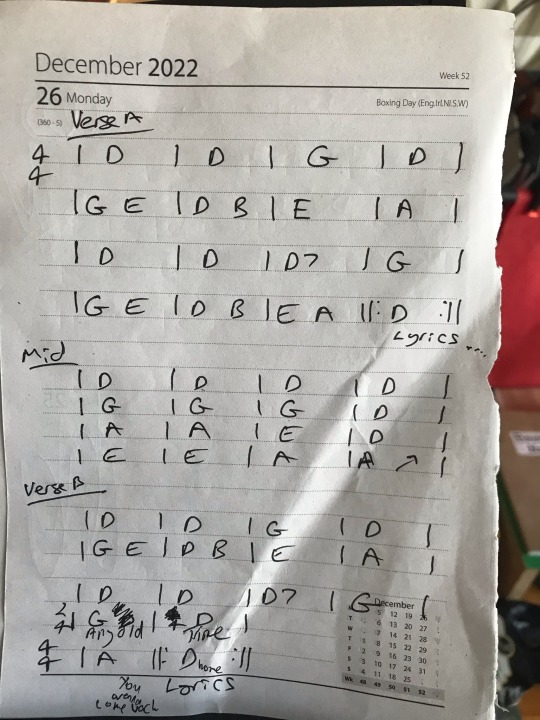 December 2022
Week 52
26 Monday
Boxing Day (Eng.Irl.NI.S.W)
(360 - 5) Verse A
4/4 | D | D | G | D |
| G E | D B | E | A |
| D | D | D7 | G |
| G E | D B | E A ||: D :||
Lyrics ....
Mid
| D | D | D | D |
| G | G | G | D |
| A | A | E | D |
| E | E | A | A ↗ |
Verse B
| D | D | G | D |
| G E | D B | E | A |
| D | D | D7 | G |
December
2/4 | G | D |
Any old Time
4/4 | A ||: D :||
home
You Lyrics
come back
5 12 19 26
6 13 20 27
7 14 21 28
T 1 8 15 22 29
F 2 9 16 23 30
S 3 10 17 24 31
S 4 11 18 25
Wk 48 49 50 51 52